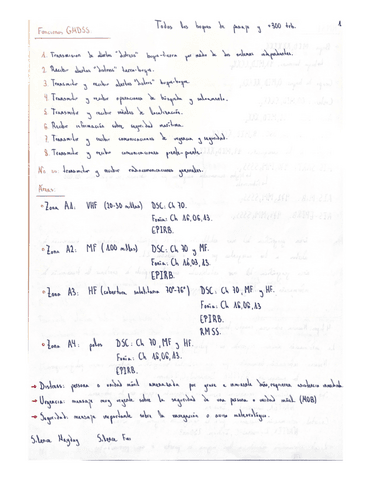 Funciones GMDSS
Todos los buques de pasaje y +300 trb.
1
1. Transmisión de alertas "" buque-tierra por medio de dos sistemas independientes.
2. Recibir alertas "" tierra-buque.
3. Transmitir y recibir alertas "" buque-buque.
4. Transmitir y recibir operaciones de búsqueda y salvamento.
5. Transmitir y recibir señales de localización.
6. Recibir información sobre seguridad marítima.
7. Transmitir y recibir comunicaciones de urgencia y seguridad.
8. Transmitir y recibir comunicaciones puente-puente.
No es: transmitir y recibir radiocomunicaciones generales.
Áreas:
Zona A1: VHF (20-30 millas) DSC: Ch 70.
Fonía: Ch 16,06,13.
EPIRB.
Zona A2: MF (100 millas) DSC: Ch 70 y MF.
Fonía: Ch 16,03,13.
EPIRB.
Zona A3: HF (cobertura satelitaria 70°-76°) DSC: Ch 70, MF y HF.
Fonía: Ch 16,06,13
EPIRB
RMSS.
Zona A4: polos DSC: Ch 70, MF y HF.
Fonía: Ch 16,06,13.
EPIRB.
→ Distress: persona o unidad móvil amenazada por grave e inminente daño, requiere asistencia inmediata.
→ Urgencia: mensaje muy urgente sobre la seguridad de una persona o unidad móvil (MOB)
→ Seguridad: mensaje importante sobre la navegación o aviso meteorológico.
Silence Mayday Silence Fini